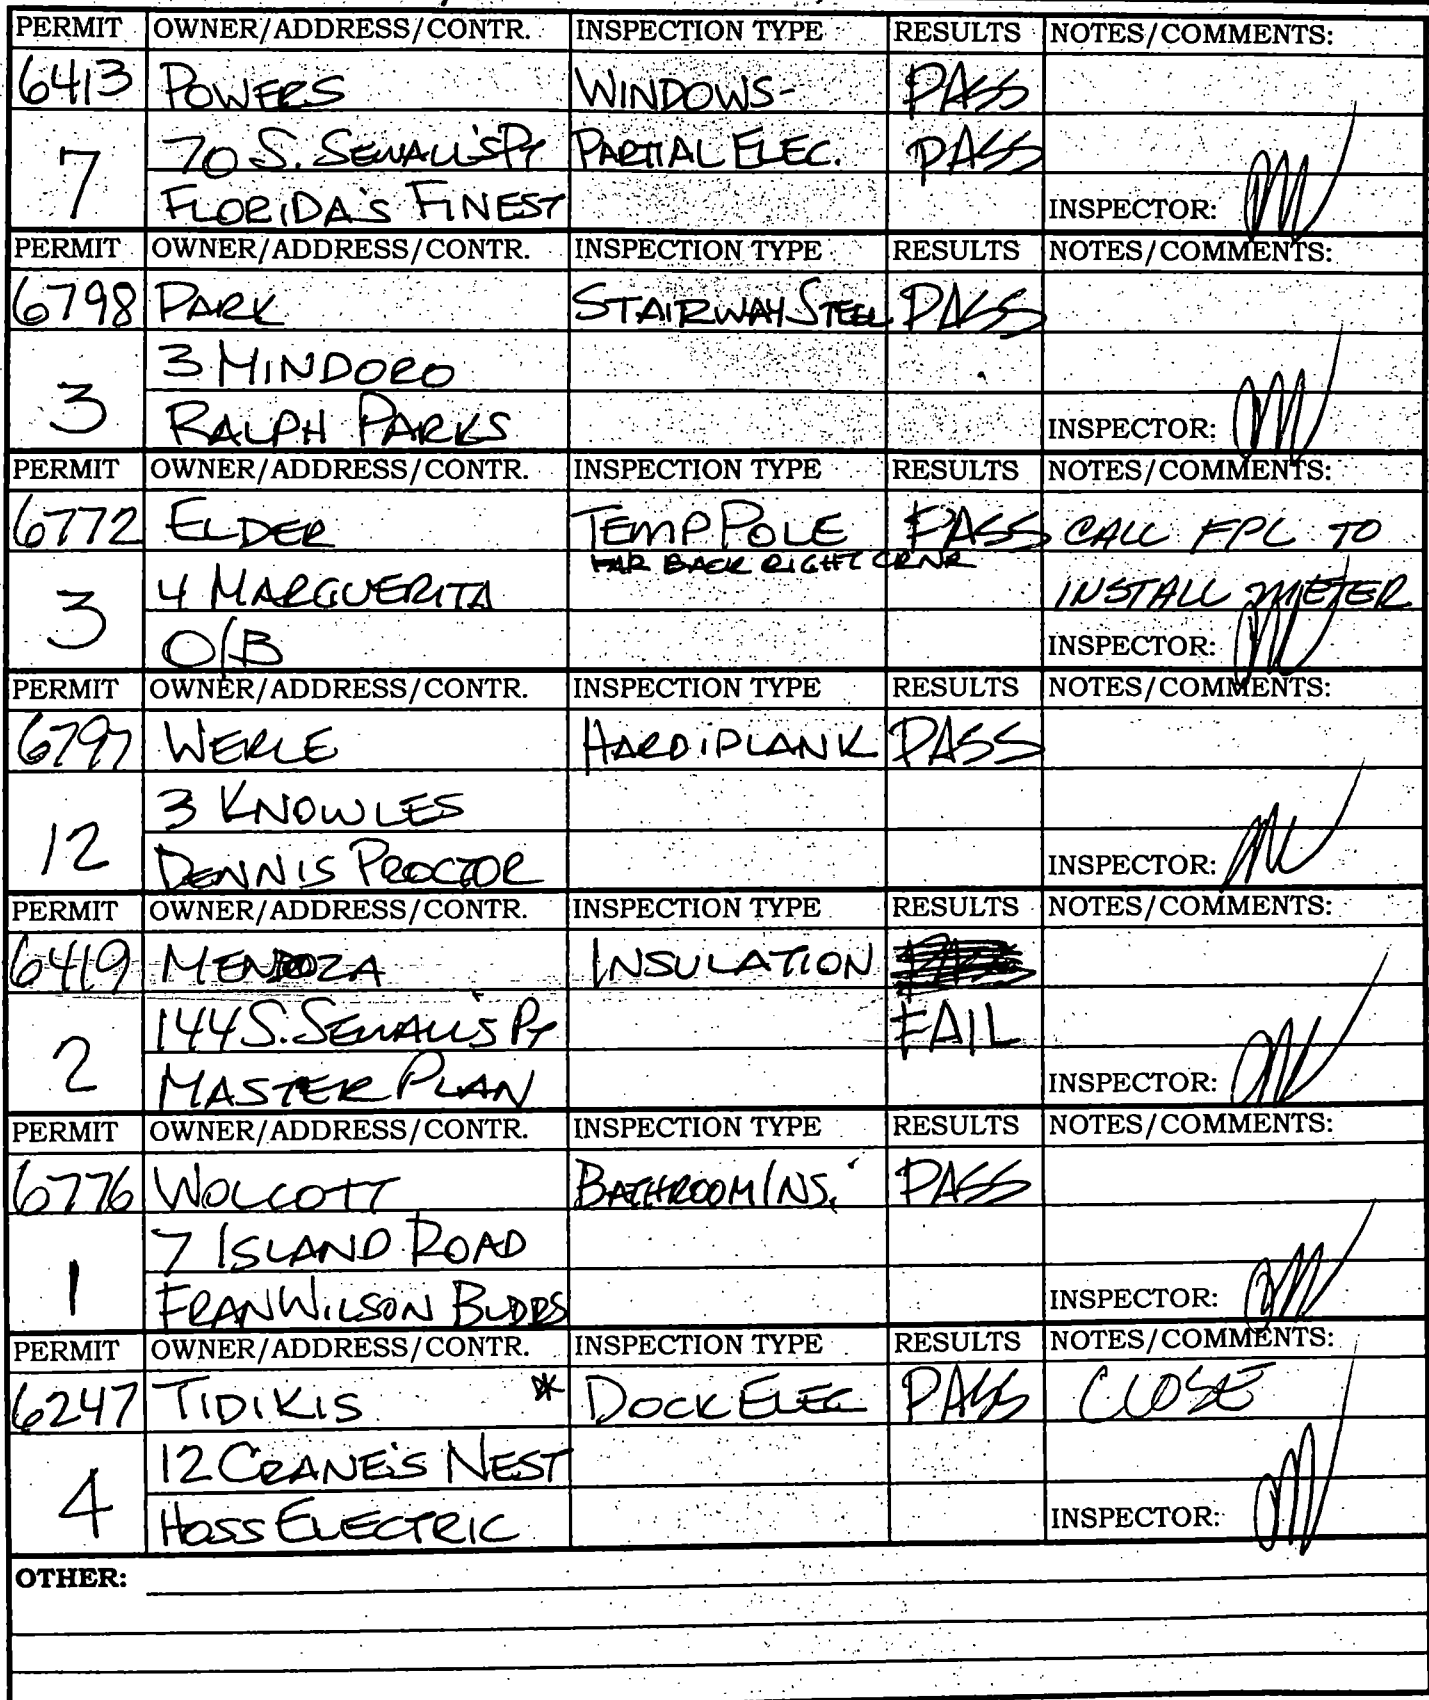 PERMIT OWNER/ADDRESS/CONTR. INSPECTION TYPE RESULTS NOTES/COMMENTS:
6413 POWERS WINDOWS- PASS
7 70 S. SEWALL'S PT PARTIAL ELEC. PASS
FLORIDA'S FINEST INSPECTOR:
PERMIT OWNER/ADDRESS/CONTR. INSPECTION TYPE RESULTS NOTES/COMMENTS:
6798 PARK STAIRWAY STEEL PASS
3 3 MINDORO
RALPH PARKS INSPECTOR:
PERMIT OWNER/ADDRESS/CONTR. INSPECTION TYPE RESULTS NOTES/COMMENTS:
6772 ELDER TEMP POLE PASS CALL FPL TO
FAR BACK RIGHT CRNR
3 4 MARGUERITA INSTALL METER
O/B INSPECTOR:
PERMIT OWNER/ADDRESS/CONTR. INSPECTION TYPE RESULTS NOTES/COMMENTS:
6797 WERLE HARDIPLANK PASS
12 3 KNOWLES
DENNIS PROCTOR INSPECTOR:
PERMIT OWNER/ADDRESS/CONTR. INSPECTION TYPE RESULTS NOTES/COMMENTS:
6419 MENDOZA INSULATION
2 144 S. SEWALL'S PT FAIL
MASTER PLAN INSPECTOR:
PERMIT OWNER/ADDRESS/CONTR. INSPECTION TYPE RESULTS NOTES/COMMENTS:
6776 WOLCOTT BATHROOM INS. PASS
1 7 ISLAND ROAD
FRAN WILSON BLDRS INSPECTOR:
PERMIT OWNER/ADDRESS/CONTR. INSPECTION TYPE RESULTS NOTES/COMMENTS:
6247 TIDIKIS * DOCK ELEC PASS CLOSE
4 12 CRANE'S NEST
HOSS ELECTRIC INSPECTOR:
OTHER: